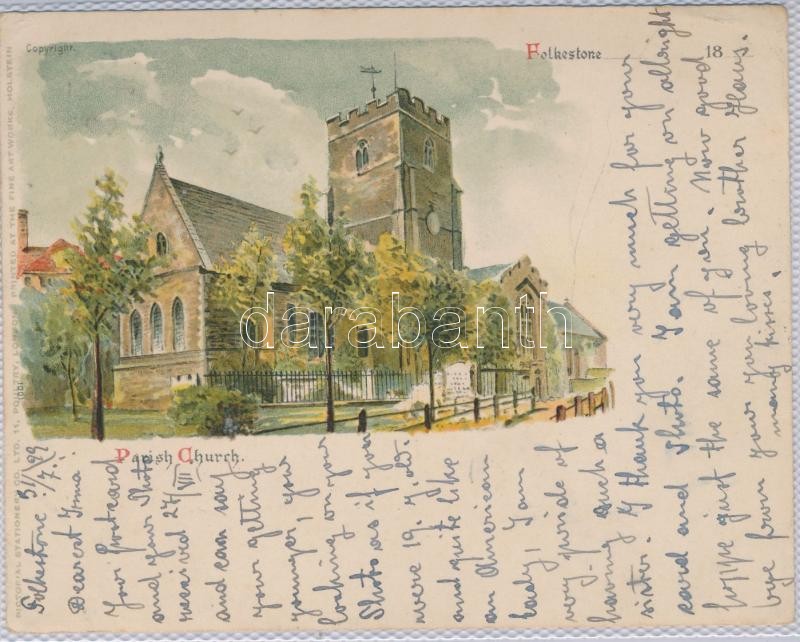 Copyright.
Folkestone
18
PICTORIAL STATIONERY CO. LTD. 11, POULTRY, LONDON. PRINTED AT THE FINE ART WORKS, HOLSTEIN
darabanth
Parish Church.
Folkestone
Dearest Irma
Your Postcard
and your Photo
received 27/VII
and can say
your getting
younger, your
looking on your
Photo as if you
were 19. y. old.
and quite like
an American
Lady, I am
very proude of
having such a
sister. I thank you very much for your
card and Photo. I am getting on allright
hoppe just the same of you. Now good
bye from your you loving brother Hans.
many kisses.